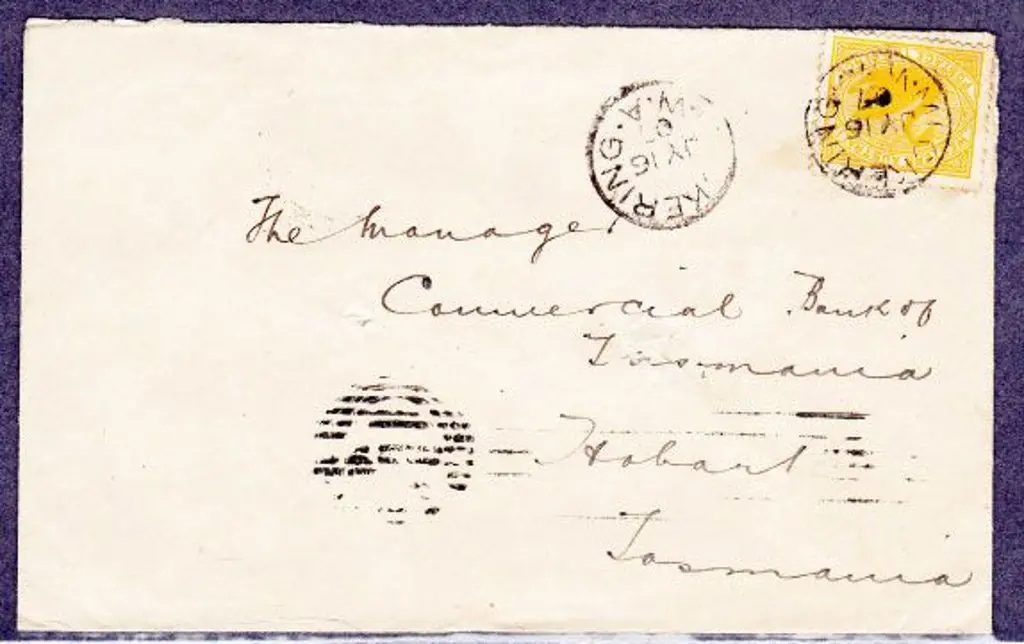 KERING · W.A.
JY 16
07
KERING · W.
JY 16
07
The Manager
Commercial Bank of
Tasmania
Hobart
Tasmania